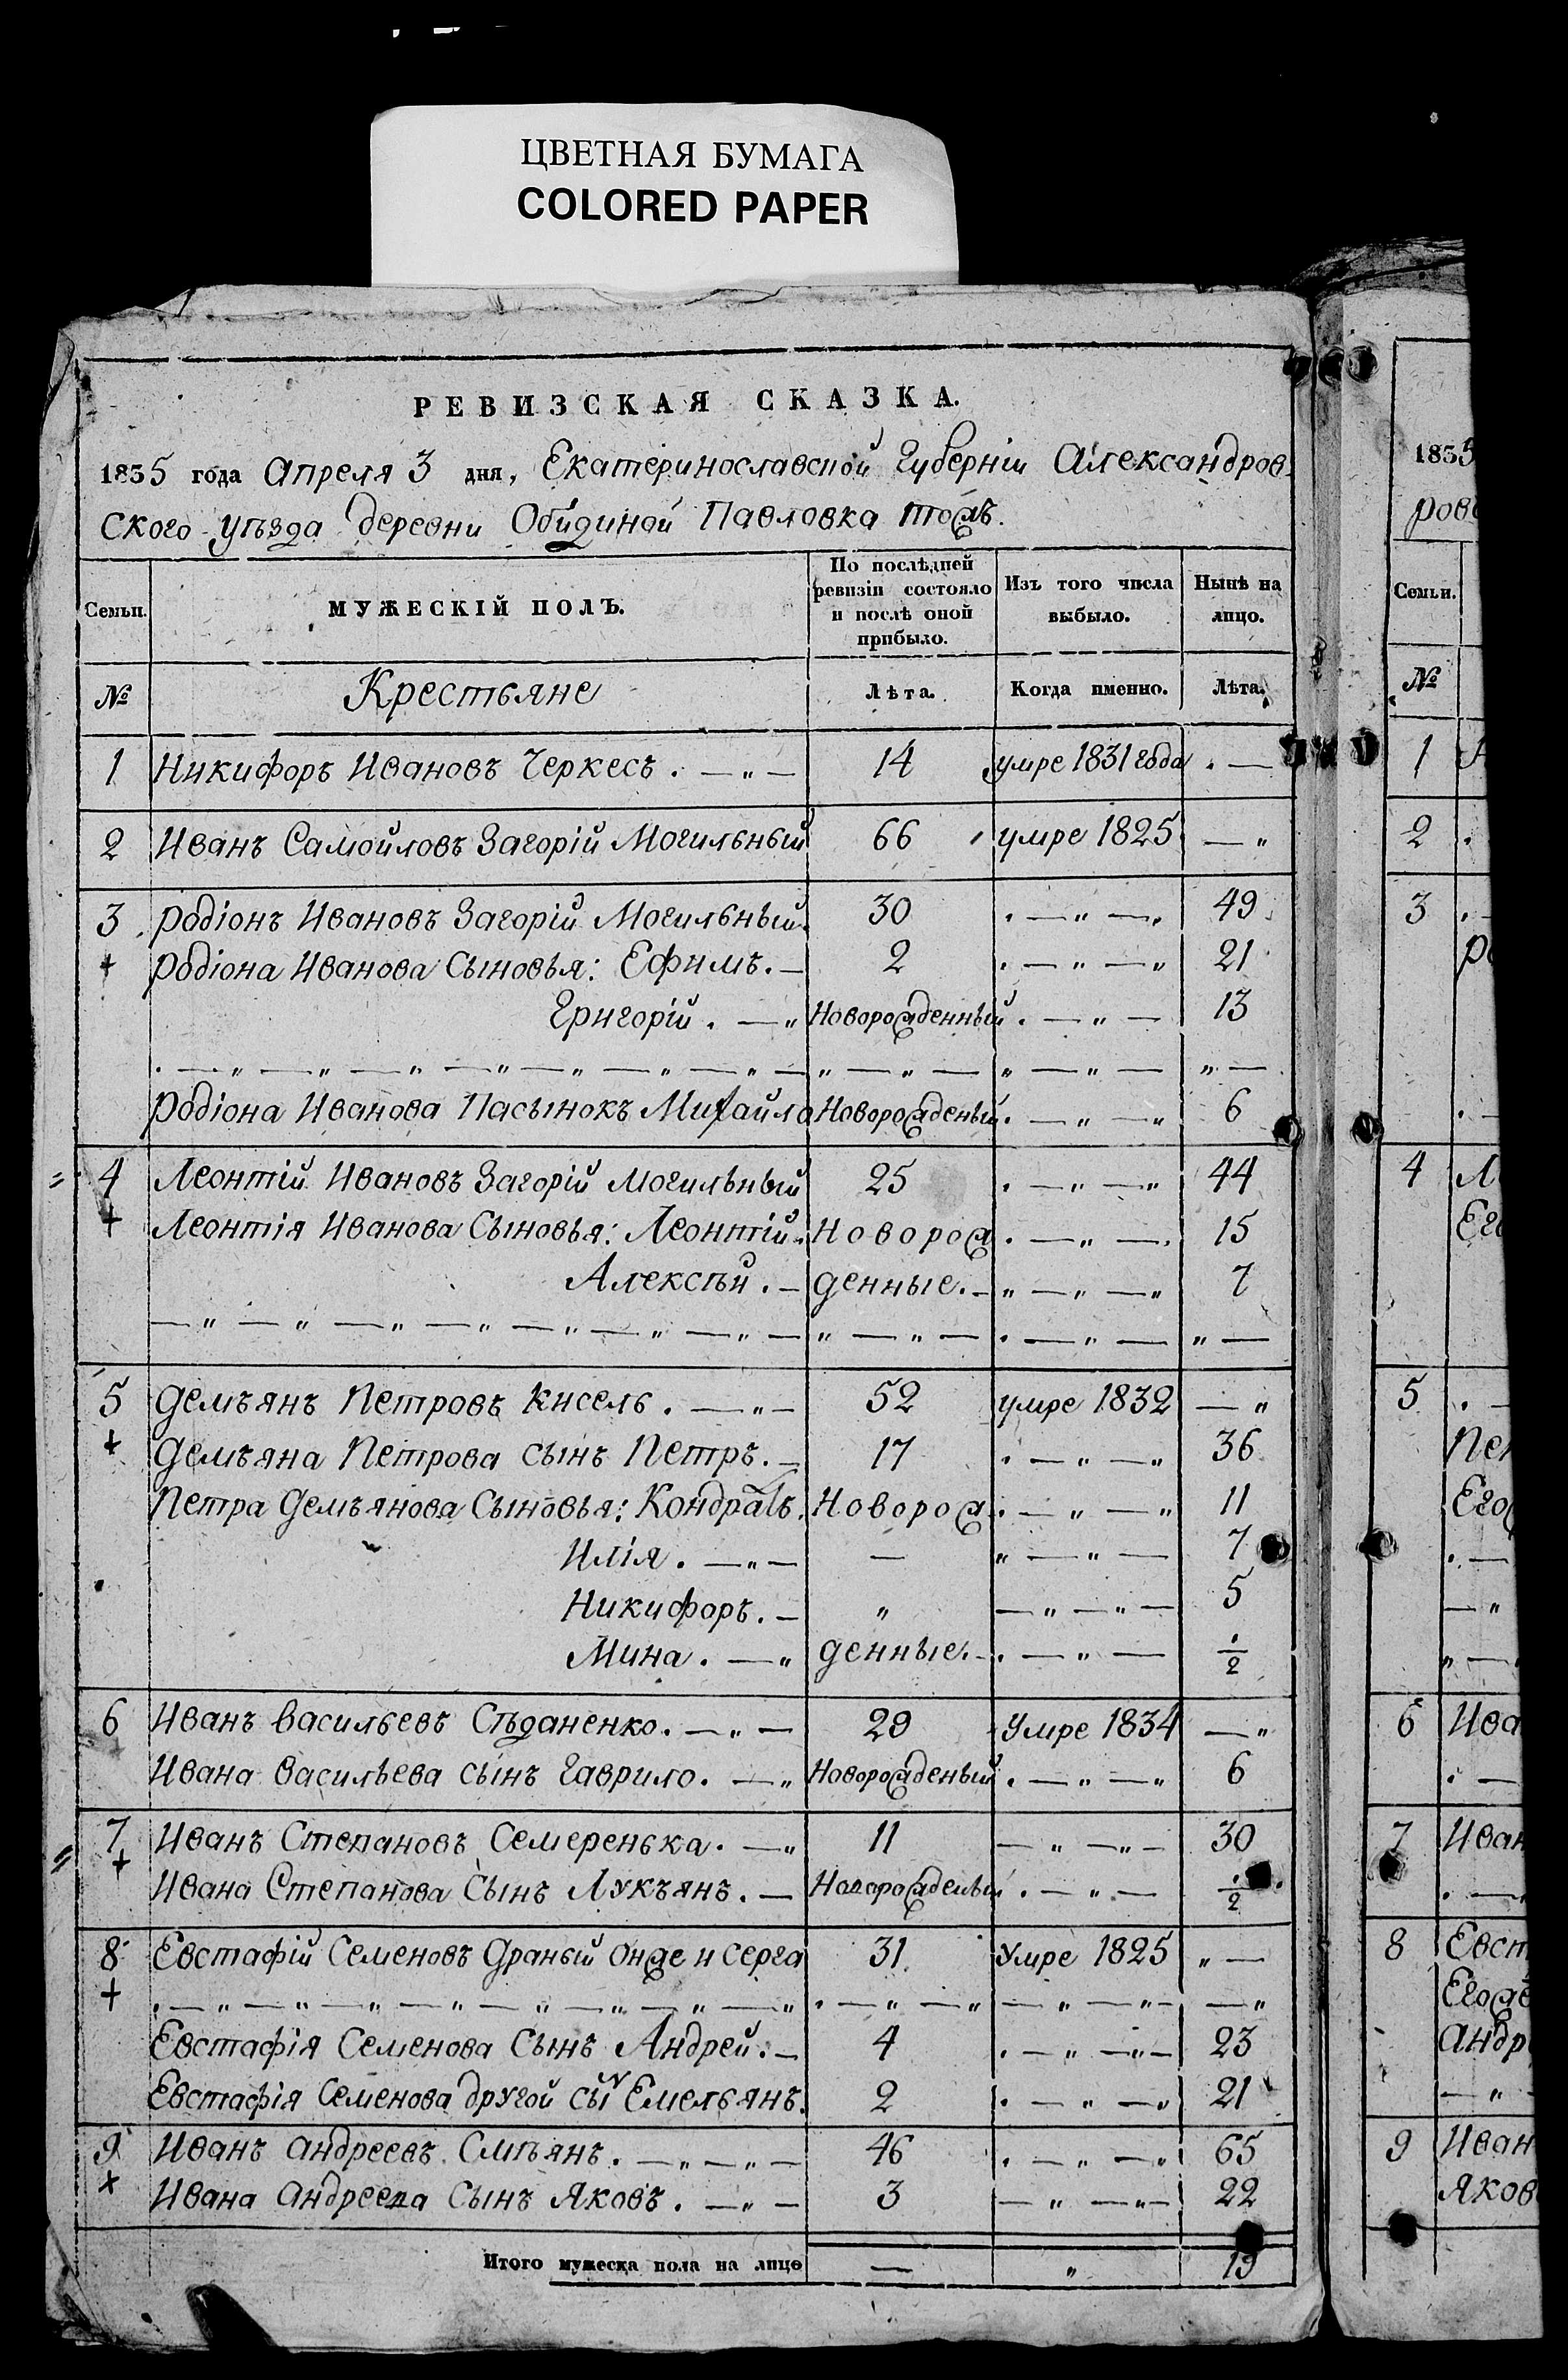 ЦВЕТНАЯ БУМАГА
COLORED PAPER
РЕВИЗСКАЯ СКАЗКА.
1835 года Апреля 3 дня, Екатеринославской Губерніи Александров-
ского уѣзда деревни Обидиной Павловка тожъ.
Семьи. МУЖЕСКІЙ ПОЛЪ. По послѣдней ревизіи состояло и послѣ оной прибыло. Изъ того числа выбыло. Нынѣ на лицо.
№ Крестьяне Лѣта. Когда именно. Лѣта.
1 Никифоръ Ивановъ Черкесъ. — „ — 14 умре 1831 года . —
2 Иванъ Самойловъ Загорій Могильный 66 умре 1825 — „
3 Родіонъ Ивановъ Загорій Могильный. 30 . — „ — „ 49
+ Родіона Иванова Сыновья: Ефимъ. — 2 . — „ — „ 21
Григорій. — „ Новорожденный . — „ — 13
. — „ — „ — „ — „ — „ — „ — „ — „ — „ — „ — „ — „ —
Родіона Иванова Пасынокъ Михайло Новорожденый . — „ — „ 6
4 Леонтій Ивановъ Загорій Могильный 25 . — „ — „ 44
+ Леонтія Иванова Сыновья: Леонтій. Новорож . — „ — . 15
Алексѣй. — денные. — „ — „ — „ 7
— „ — „ — „ — „ — „ — „ — „ — „ — „ — . — „ — „ —
5 Демъянъ Петровъ Кисель. — „ — 52 умре 1832 — „
+ Демъяна Петрова сынъ Петръ. — 17 . — „ — „ 36
Петра Демъянова Сыновья: Кондратъ. Новорож . — „ — „ 11
Илія. — „ — — „ — „ — 7
Никифоръ. — „ — „ — „ — 5
Мина. — „ денные. — . — „ — ½
6 Иванъ Васильевъ Сѣданенко. — „ — 29 Умре 1834 — „
Ивана Васильева сынъ Гаврило. — „ Новорожденый . — „ — „ 6
7 Иванъ Степановъ Семеренька. — „ 11 — „ — „ — 30
+ Ивана Степанова Сынъ Лукъянъ. — Новорожденый . — „ — ½
8 Евстафій Семеновъ Драный онже и серга 31 Умре 1825 „ —
+ . — „ — „ — „ — „ — „ — „ — „ — „ . — „ — „ — „ — „ — — „
Евстафія Семенова Сынъ Андрей. — 4 . — „ — „ — 23
Евстафія Семенова другой сын Емельянъ. 2 . — „ — „ 21
9 Иванъ Андреевъ Смѣянъ. — „ — „ — 46 . — „ — „ 65
+ Ивана Андреева Сынъ Яковъ. — „ — 3 — „ — „ — 22
Итого мужеска пола на лицо — „ 19
1835
ров
Семьи.
№
1
2
3
Ро
4 Ле
Его
5
Пет
Егож
6 Ива
7 Иван
8 Евст
Егож
Андр
9 Иван
Яков